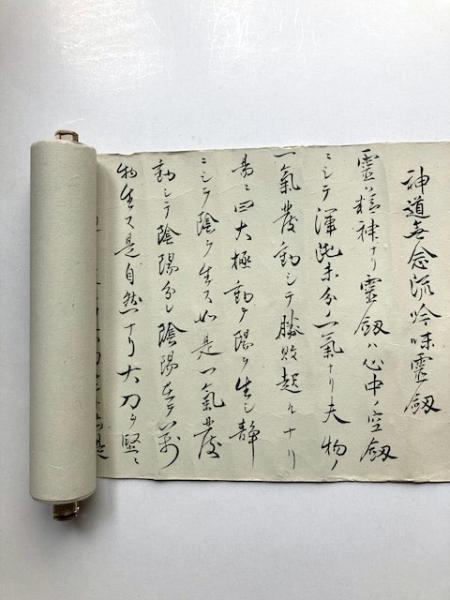 神道無念流吟味靈劔
靈ハ精神ナリ靈劔ハ心中ノ空劔
ニシテ渾沌未分ノ一氣ナリ夫物ノ
一氣發動シテ勝敗起ルナリ
易ニ曰太極動テ陽ヲ生シ静
ニシテ陰ヲ生ス如是一氣發
動シテ陰陽分レ陰陽在テ萬
物生ス是自然ナリ大刀ヲ堅ニ